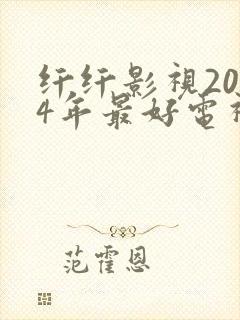 纤纤影视20
4年最好电
范霍恩